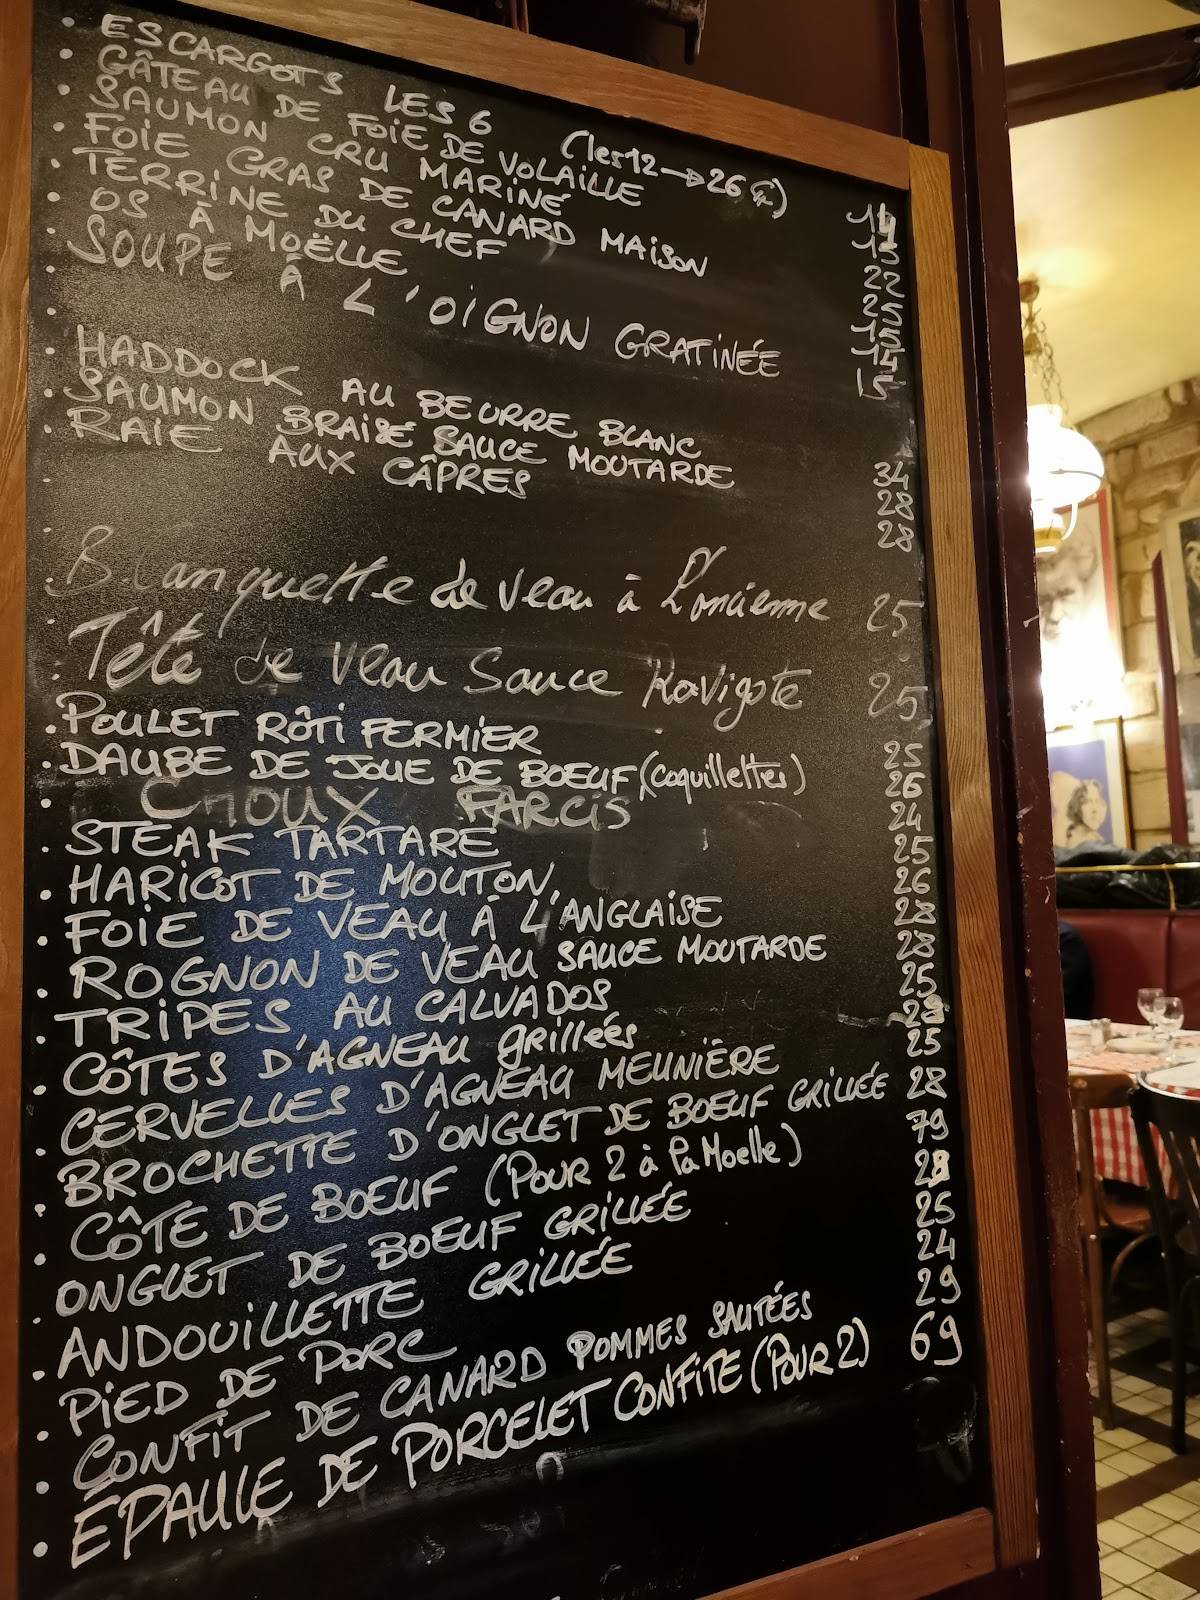 ESCARGOTS LES 6 (les 12 → 26 €) 14
GÂTEAU DE FOIE DE VOLAILLE 15
SAUMON CRU MARINÉ 22
FOIE GRAS DE CANARD MAISON 25
TERRINE DU CHEF 15
OS À MOËLLE 14
SOUPE À L'OIGNON GRATINÉE 15
HADDOCK AU BEURRE BLANC 34
SAUMON BRAISÉ SAUCE MOUTARDE 28
RAIE AUX CÂPRES 28
Blanquette de veau à l'ancienne 25
Tête de veau Sauce Ravigote 25
POULET RÔTI FERMIER 25
DAUBE DE JOUE DE BOEUF (Coquillettes) 26
CHOUX FARCIS 24
STEAK TARTARE 25
HARICOT DE MOUTON 26
FOIE DE VEAU À L'ANGLAISE 28
ROGNON DE VEAU SAUCE MOUTARDE 28
TRIPES AU CALVADOS 25
CÔTES D'AGNEAU grillées 28
CERVELLES D'AGNEAU MEUNIÈRE 25
BROCHETTE D'ONGLET DE BOEUF GRILLÉE 28
CÔTE DE BOEUF (POUR 2 à la Moelle) 79
ONGLET DE BOEUF GRILLÉE 28
ANDOUILLETTE GRILLÉE 25
PIED DE PORC 24
CONFIT DE CANARD POMMES SAUTÉES 29
ÉPAULE DE PORCELET CONFITE (POUR 2) 69